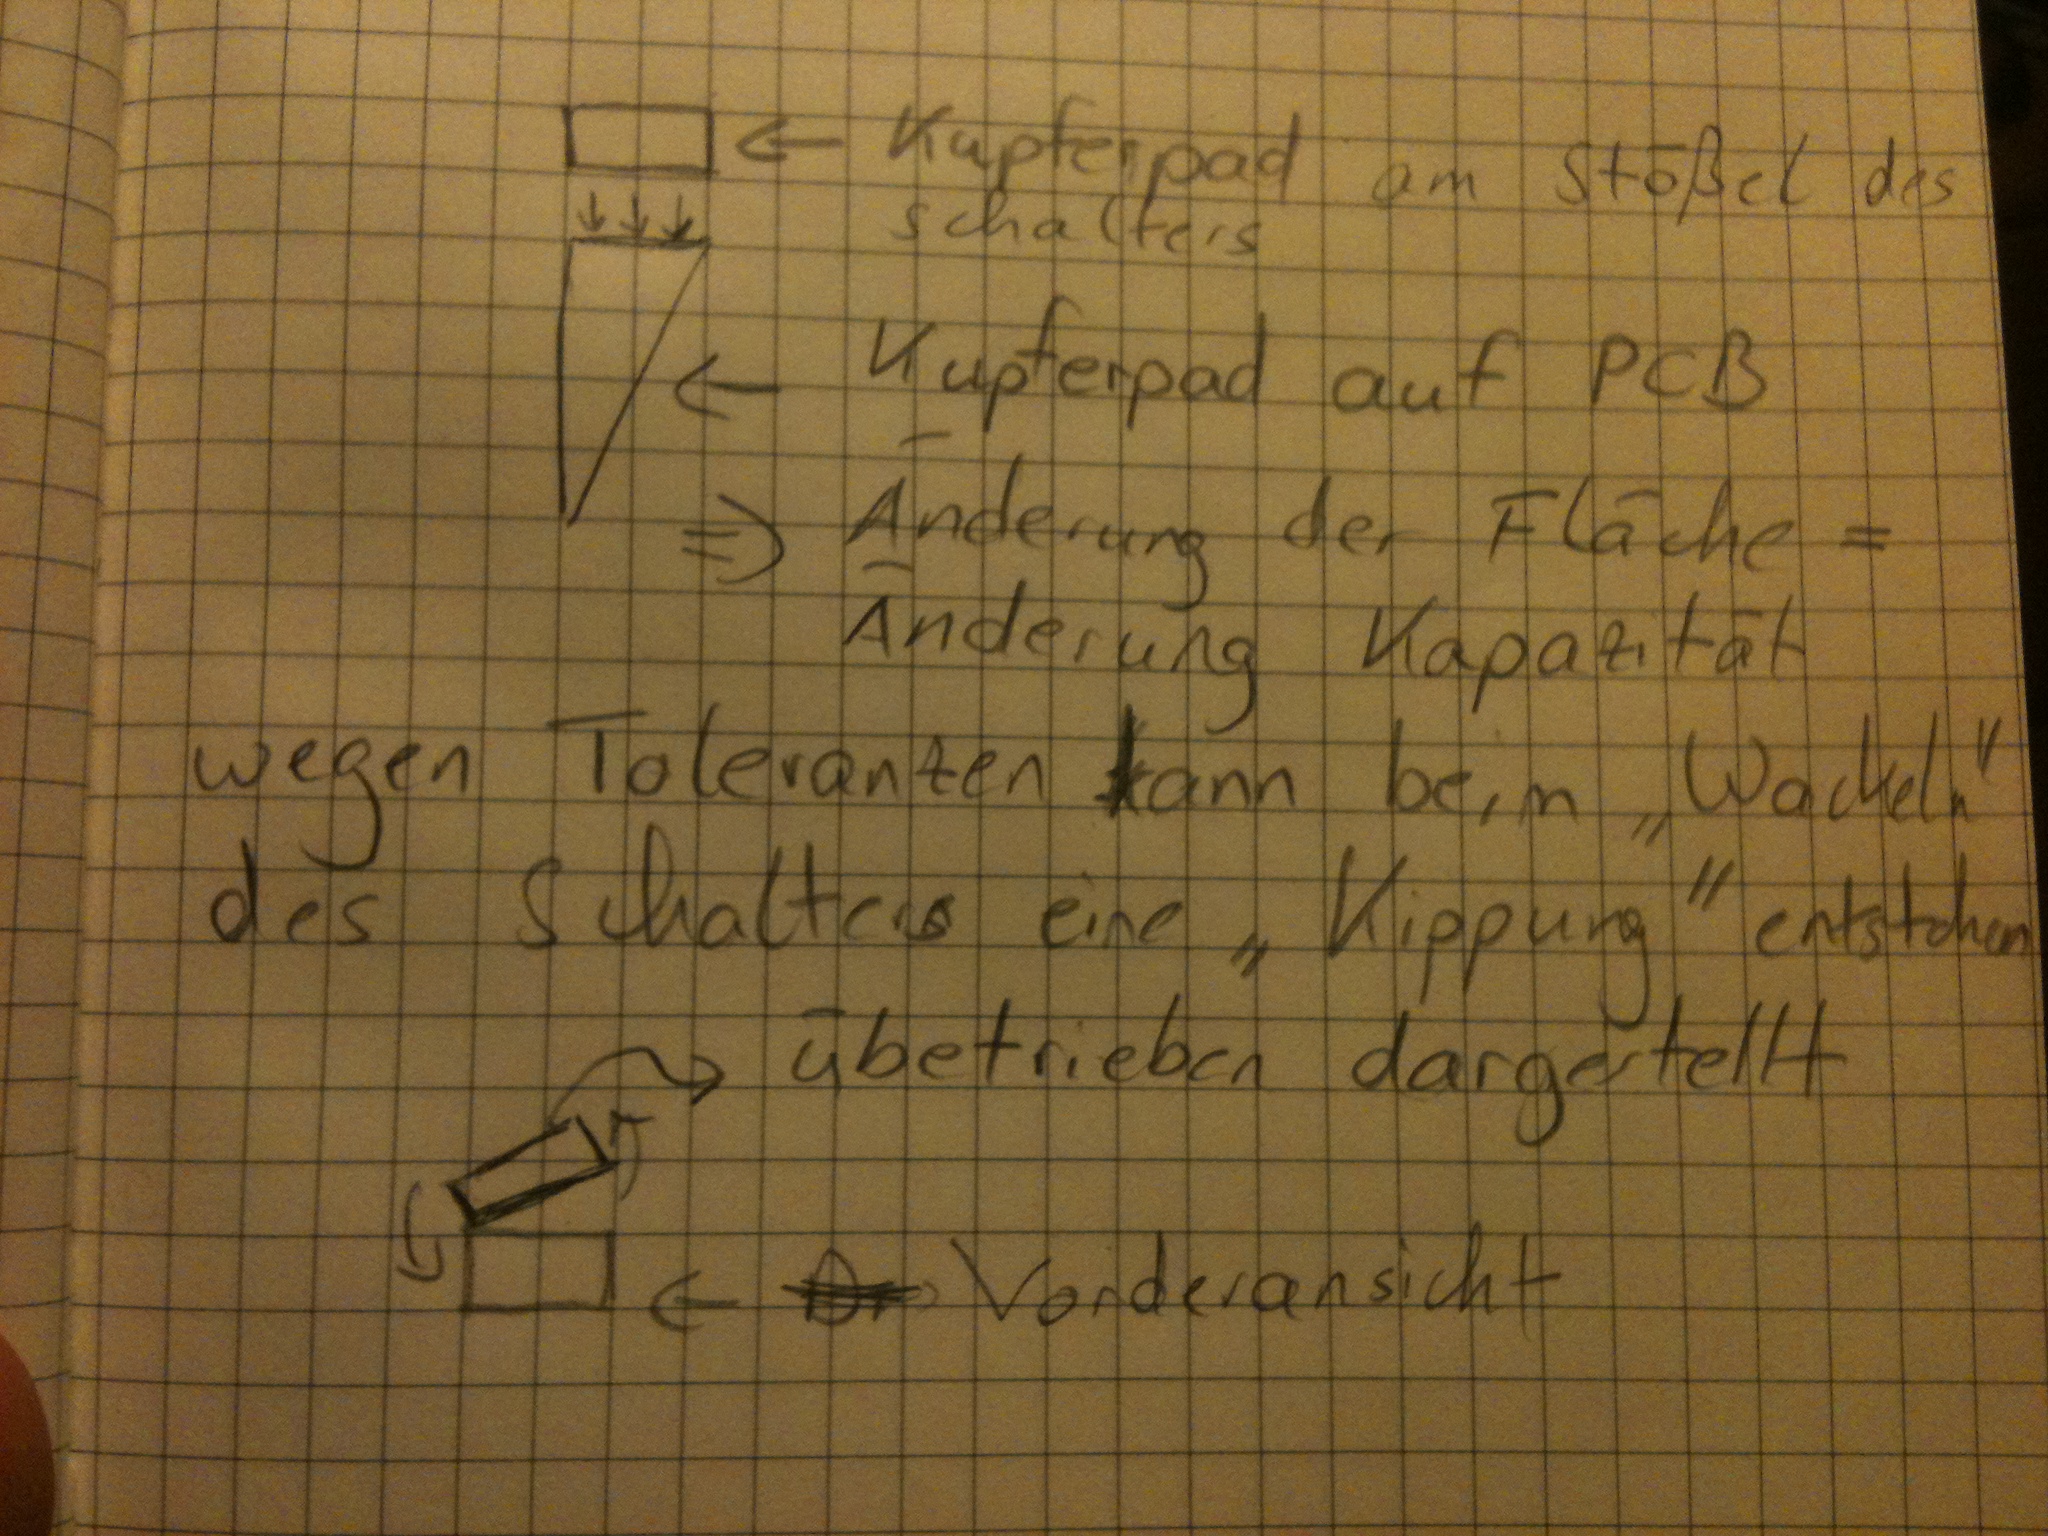 Kupferpad am Stößel des
schalters
Kupferpad auf PCB
⇒ Änderung der Fläche =
Änderung Kapazität
wegen Toleranzen kann beim „Wackeln"
des Schalters eine „Kippung" entstehen
übetrieben dargestellt
Vorderansicht